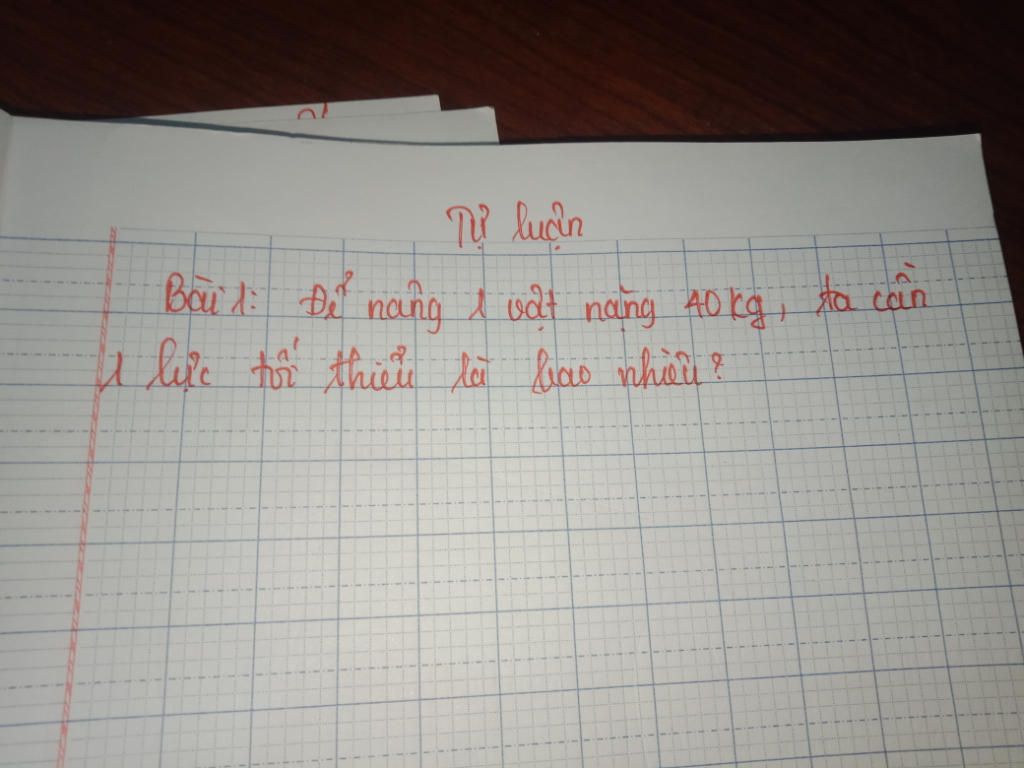 Tự luận
Bài 1: Để nâng 1 vật nặng 40kg, ta cần
1 lực tối thiểu là bao nhiêu?